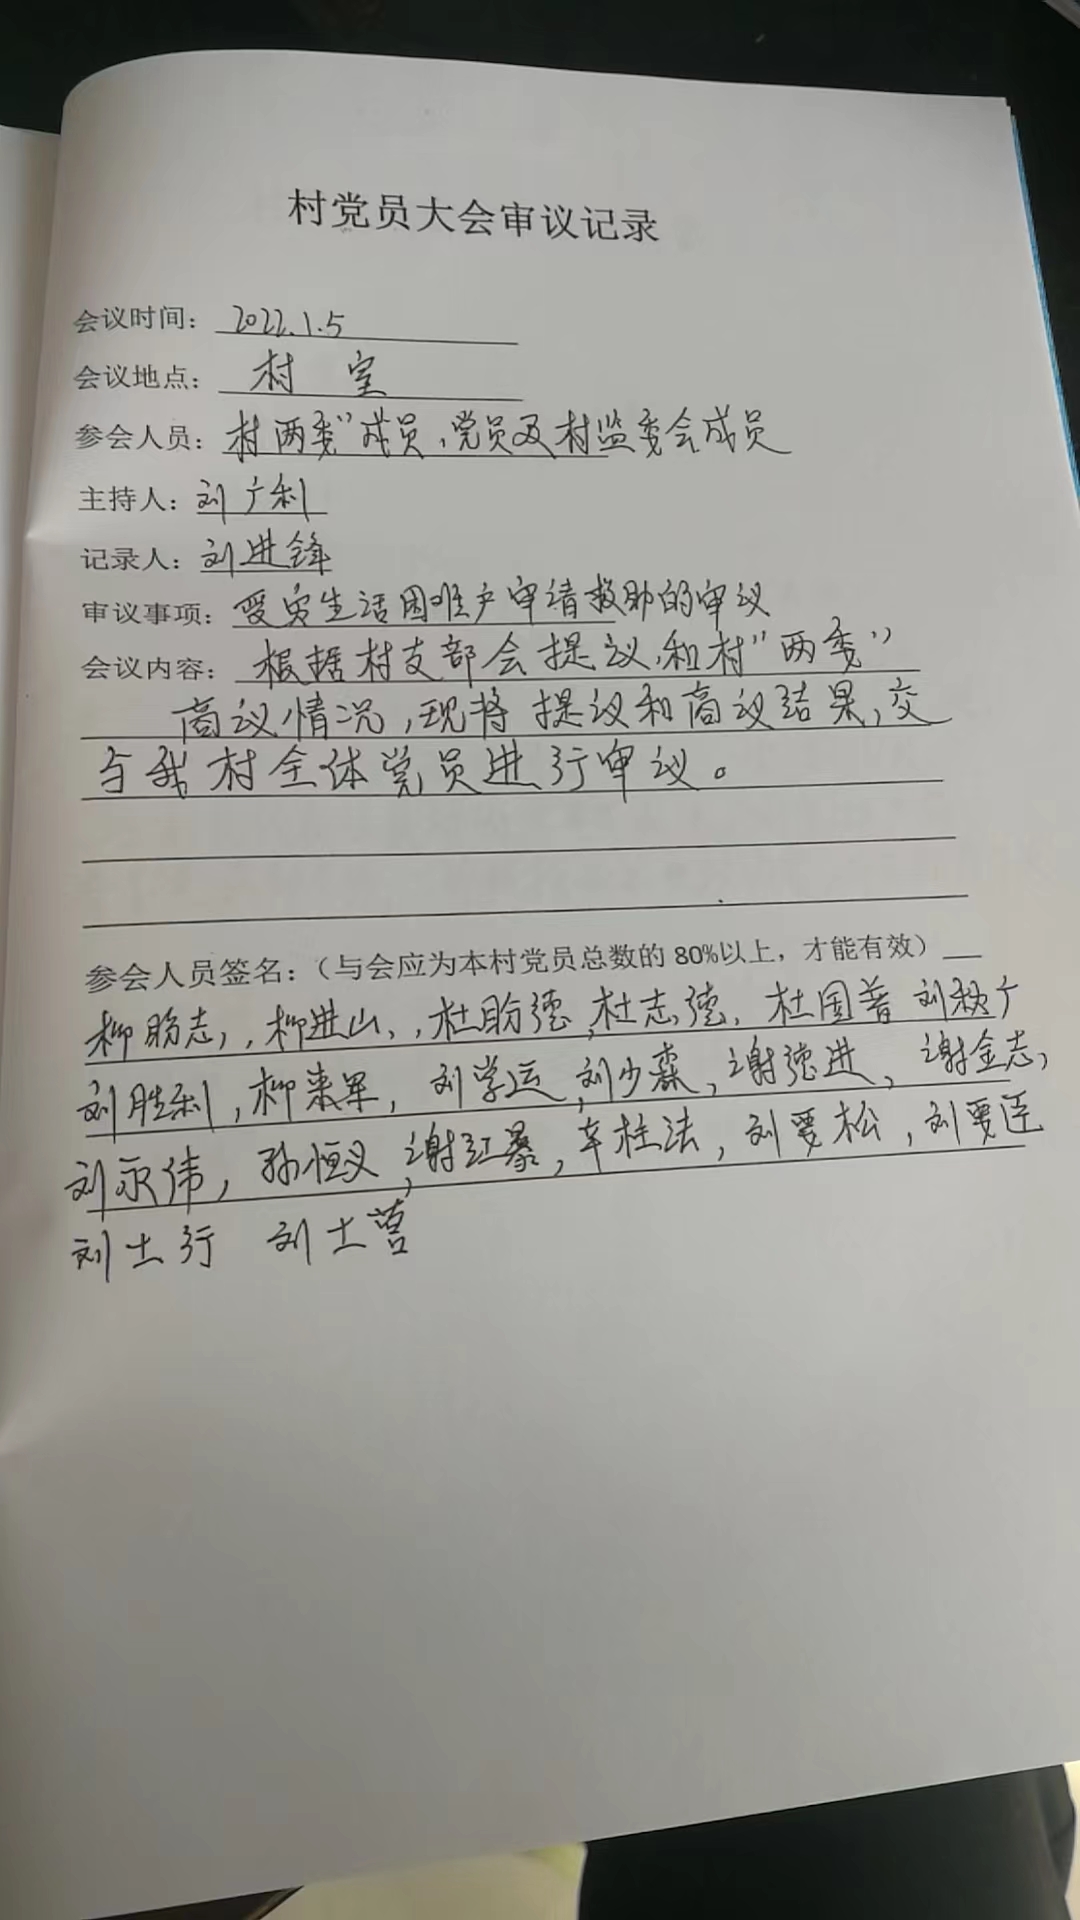 村党员大会审议记录
会议时间：2022.1.5
会议地点：村 室
参会人员：村两委”成员、党员及村监委会成员
主持人：刘广利
记录人：刘进锋
审议事项：受灾生活困难户申请救助的审议
会议内容：根据村支部会提议，和村“两委”
商议情况，现将提议和商议结果，交
与我村全体党员进行审议。
参会人员签名：（与会应为本村党员总数的 80%以上，才能有效）
柳盼志，柳进山，杜盼德，杜志德，杜国普 刘秋广
刘胜利，柳来军，刘学运，刘少森，谢德进，谢金志，
刘永伟，孙恒义，谢红，车柱法，刘要松，刘要臣
刘士行 刘士营